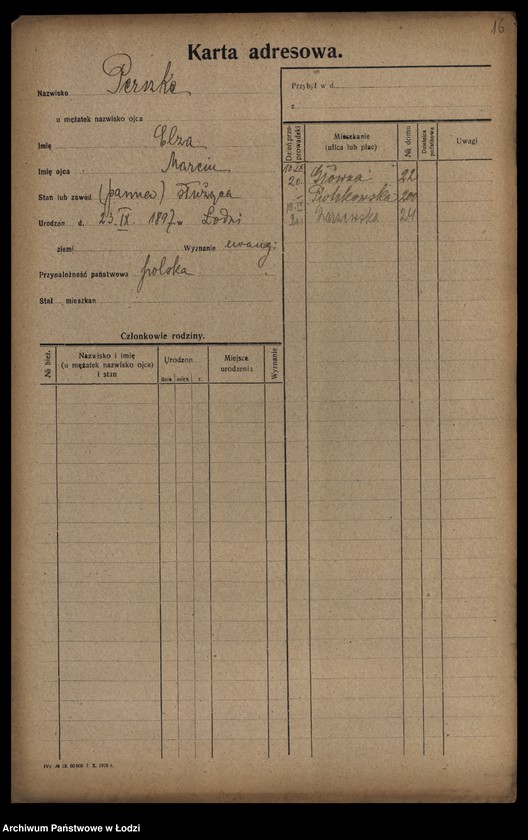 16
Karta adresowa.
Nazwisko Perske
u mężatek nazwisko ojca
Imię Elza
Imię ojca Marcin
Stan lub zawód (panna) służąca
Urodzon d. 23 IX 1897 w Łodzi
ziemi Wyznanie ewang.
Przynależność państwowa polska
Stał mieszkan
Przybył w d.
z
Dzień przeprowadzki
Mieszkanie
(ulica lub plac)
№ domu
Dzielnica
państwowa
Uwagi
20. Główna 22
Piotrkowska 200
Zarzewska 24
Członkowie rodziny.
№ bież.
Nazwisko i imię
(u mężatek nazwisko ojca)
i stan
Urodzon
dnia mies. r.
Miejsce
urodzenia
Wyznanie
Archiwum Państwowe w Łodzi